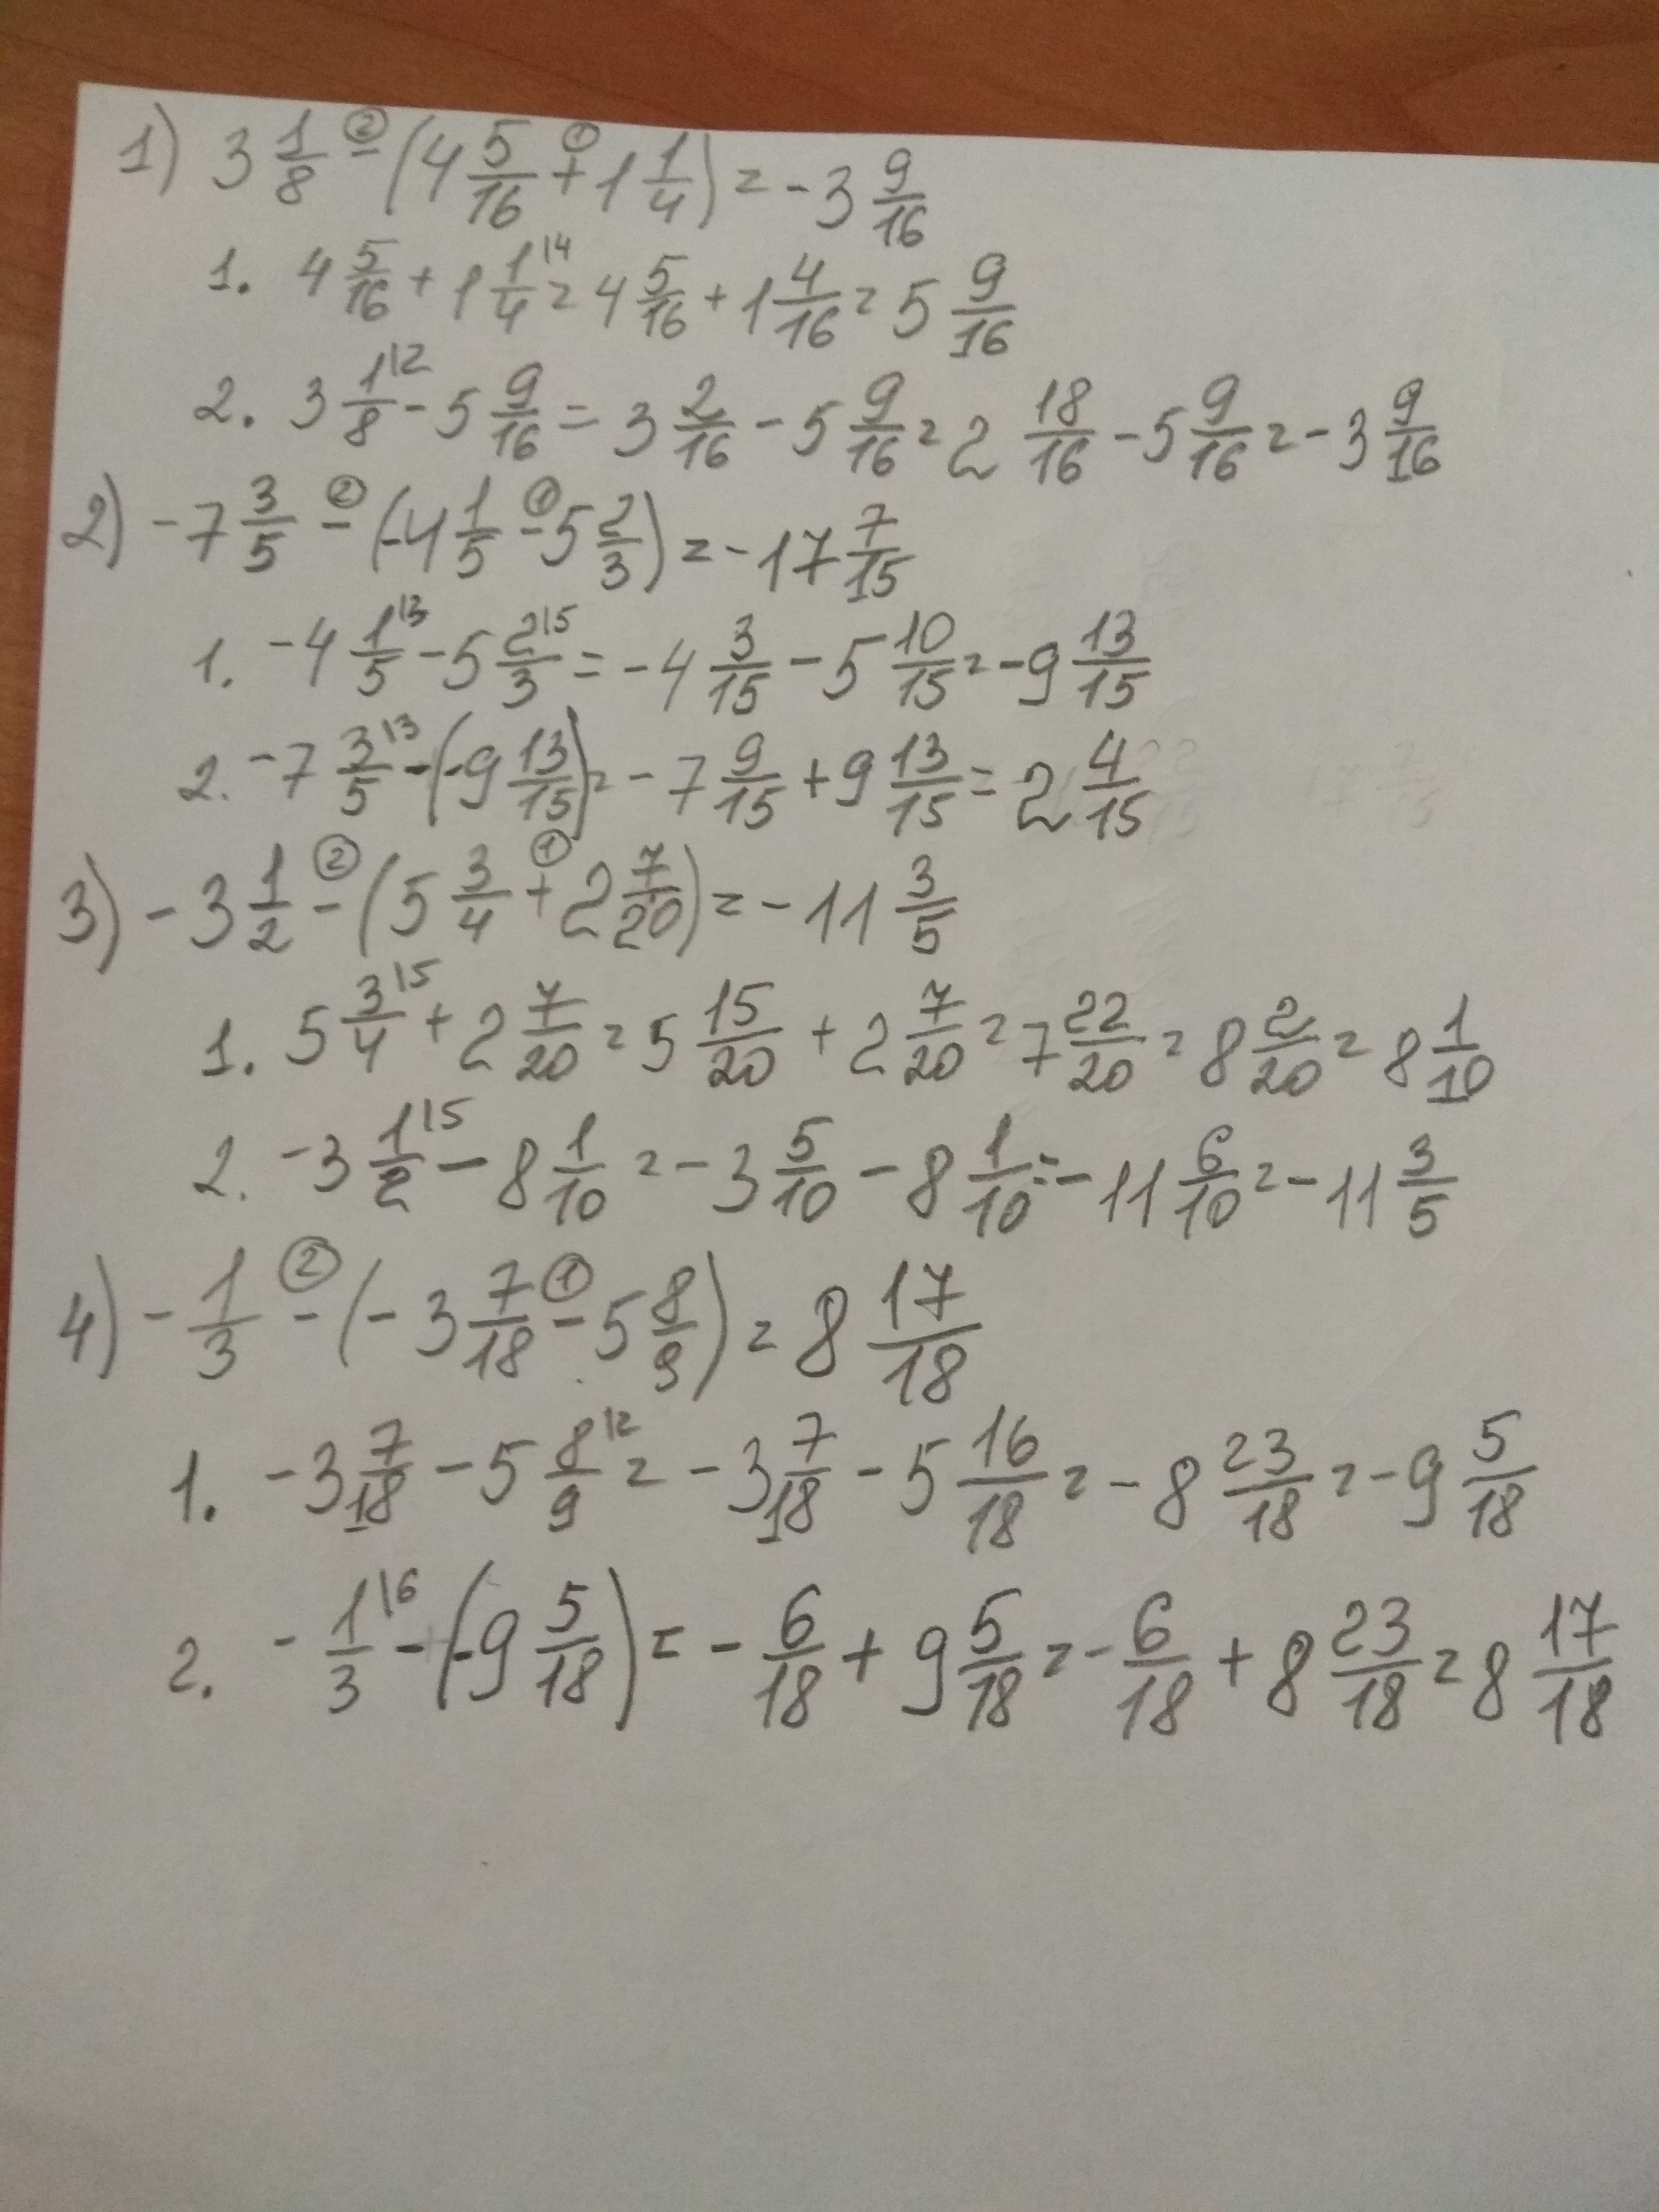 1) 3 1/8 -② (4 5/16 +① 1 1/4) = -3 9/16
1. 4 5/16 + 1 1/4\4 = 4 5/16 + 1 4/16 = 5 9/16
2. 3 1/8\2 - 5 9/16 = 3 2/16 - 5 9/16 = 2 18/16 - 5 9/16 = -3 9/16
2) -7 3/5 -② (-4 1/5 -① 5 2/3) = -17 7/15
1. -4 1/5\3 - 5 2/3\5 = -4 3/15 - 5 10/15 = -9 13/15
2. -7 3/5\3 - (-9 13/15) = -7 9/15 + 9 13/15 = 2 4/15
3) -3 1/2 -② (5 3/4 +① 2 7/20) = -11 3/5
1. 5 3/4\5 + 2 7/20 = 5 15/20 + 2 7/20 = 7 22/20 = 8 2/20 = 8 1/10
2. -3 1/2\5 - 8 1/10 = -3 5/10 - 8 1/10 = -11 6/10 = -11 3/5
4) -1/3 -② (-3 7/18 -① 5 8/9) = 8 17/18
1. -3 7/18 - 5 8/9\2 = -3 7/18 - 5 16/18 = -8 23/18 = -9 5/18
2. -1/3\6 - (-9 5/18) = -6/18 + 9 5/18 = -6/18 + 8 23/18 = 8 17/18